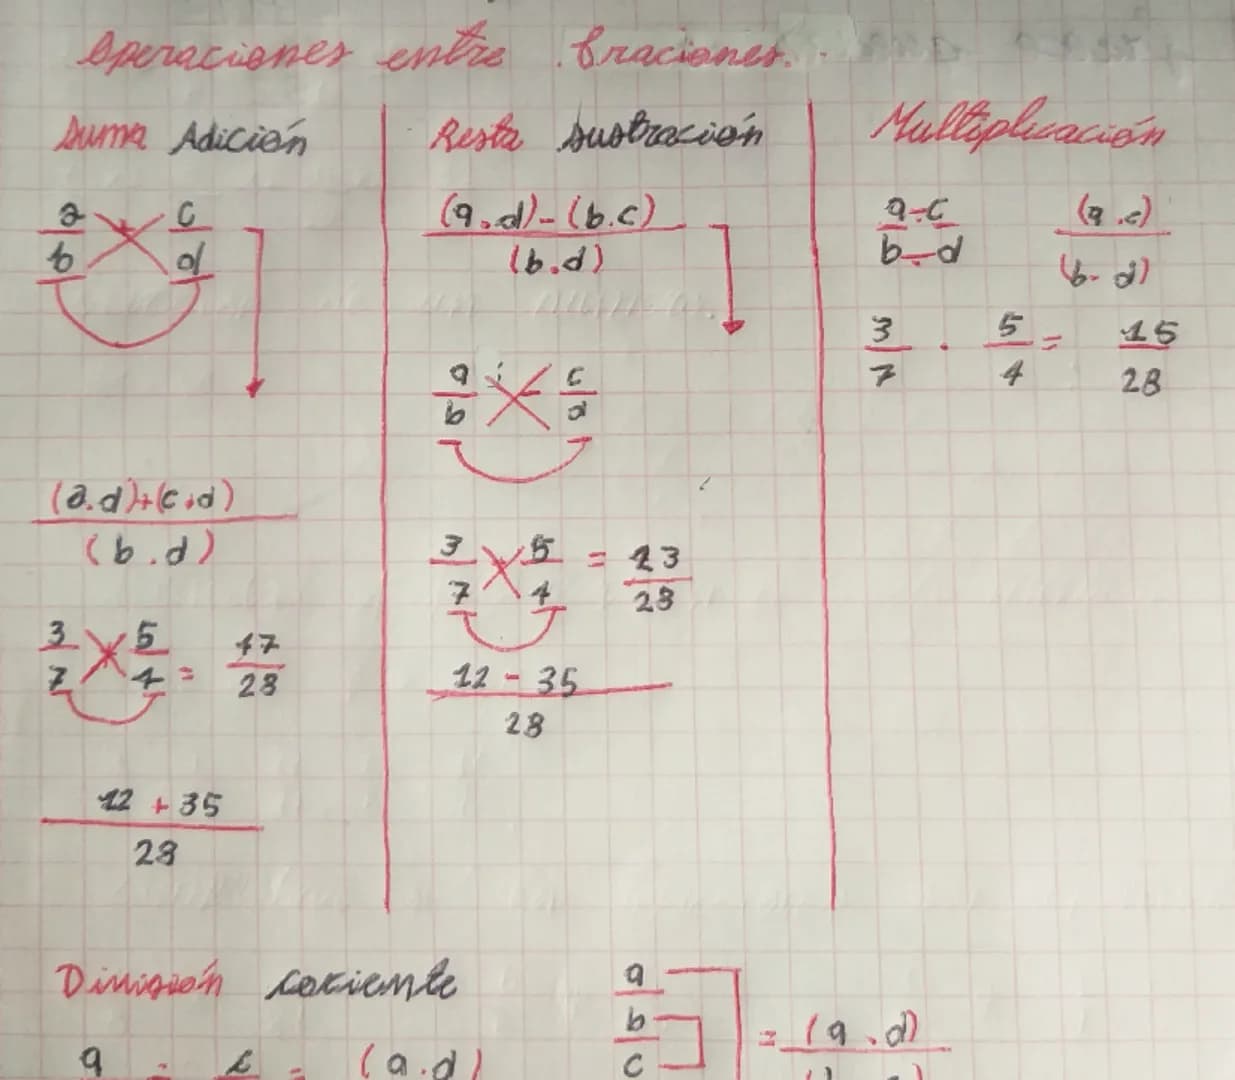 Operaciones entre fraciones.
Suma Adición
a c
b d
(a.d)+(c.d)
(b.d)
3 5 47
7 4 = 28
12 + 35
28
Resta sustracción
(a.d)-(b.c)
(b.d)
a c
b d
3 5 = 23
7 4 28
12 - 35
28
Multiplicación
a÷c (a.c)
b÷d (b.d)
3 . 5 = 15
7 4 28
División cociente
a ÷ c = (a.d)
a
b
c
= (a.d)